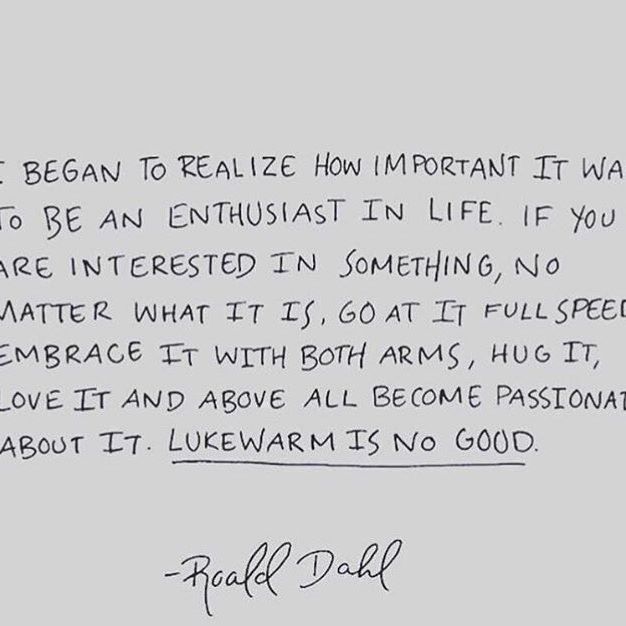 I BEGAN TO REALIZE HOW IMPORTANT IT WA
TO BE AN ENTHUSIAST IN LIFE. IF YOU
ARE INTERESTED IN SOMETHING, NO
MATTER WHAT IT IS, GO AT IT FULL SPEED
EMBRACE IT WITH BOTH ARMS, HUG IT,
LOVE IT AND ABOVE ALL BECOME PASSIONAT
ABOUT IT. LUKEWARM IS NO GOOD.
-Roald Dahl